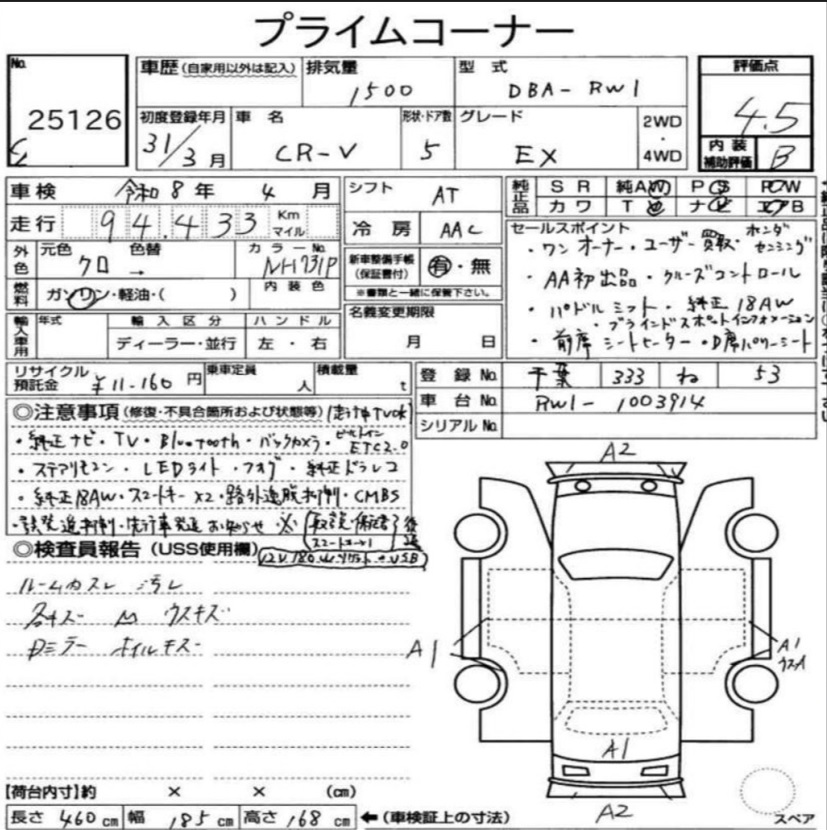 プライムコーナー
No. 25126
車歴 (自家用以外は記入) 排気量 1500 型式 DBA-RW1
評価点 4.5
初度登録年月 31/3月 車名 CR-V 形状・ドア数 5 グレード EX 2WD・4WD
内装補助評価 B
車検 令和8年 4月 シフト AT
純正品 SR 純AW PS PW
カワ TV ナビ エアB
走行 94,433 Km マイル 冷房 AAC
外色 元色 クロ 色替 → カラーNo. NH731P 内装色
新車整備手帳(保証書付) 有・無
※書類と一緒に保管下さい。
燃料 ガソリン・軽油・( )
セールスポイント
・ワンオーナー・ユーザー買取・ホンダセンシング
・AA初出品・クルーズコントロール
・パドルシフト・純正18AW
・ブラインドスポットインフォメーション
・前席シートヒーター・D席パワーシート
輸入車用 年式 輸入区分 ディーラー・並行 ハンドル 左・右
名義変更期限 月 日
リサイクル預託金 ¥11,160円 乗車定員 人 積載量 t
登録No. 千葉 333 ね 53
車台No. RW1-1003914
シリアルNo.
◎注意事項(修復・不具合箇所および状態等) (走行中TVOK)
・純正ナビ・TV・Bluetooth・バックカメラ・ビルトインETC2.0
・ステアリモコン・LEDライト・フォグ・純正ドラレコ
・純正18AW・スマートキーx2・路外逸脱抑制・CMBS
・誤発進抑制・先行車発進お知らせ
◎検査員報告(USS使用欄)
ルームカスレ 汚レ
各キズー ウスキズ
Dミラー ホイルキズー
A2
A1
A1
ウスA
A1
A2
【荷台内寸】約 × × (cm)
長さ 460cm 幅 185cm 高さ 168cm ←(車検証上の寸法)
スペア